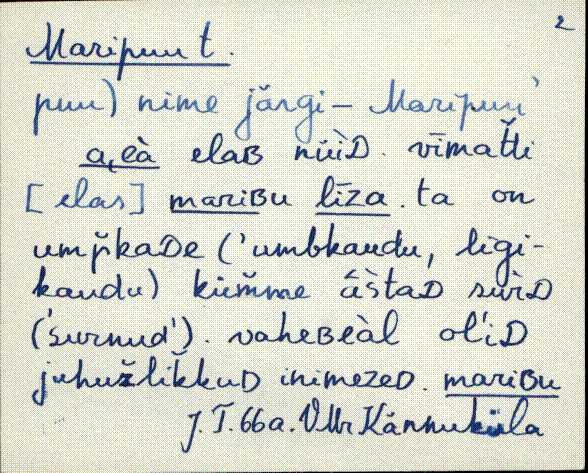 2
Maripuu t.
puu) nime järgi – Maripuu'
a,eà elaʙ nüìᴅ. vīmat̆t̆i
[elas] mariʙu līza. ta on
ump̆kaᴅe ('umbkaudu, ligi-
kaudu) küm̆me āštaᴅ surᴅ
('surnud'). vaheʙeàl ol'iᴅ
juhužlikkuᴅ inimezeᴅ. mariʙu
J. T. 66 a. VMr Kännuküla